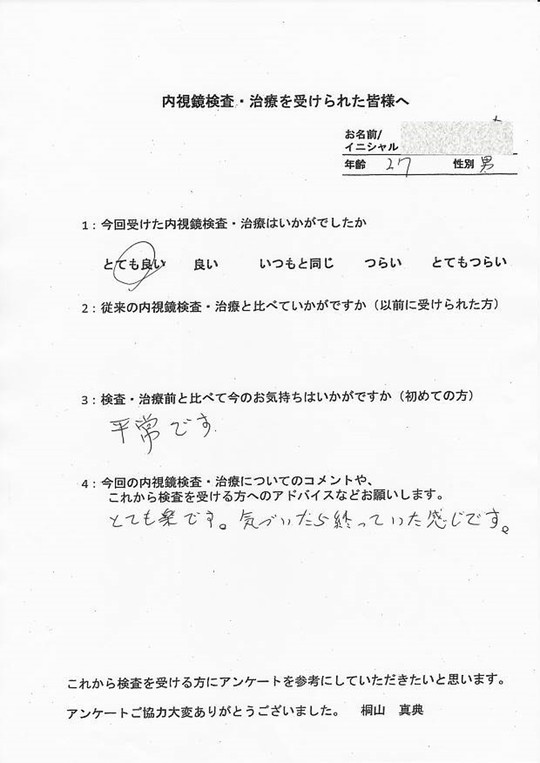 内視鏡検査・治療を受けられた皆様へ
お名前/
イニシャル
年齢 27 性別 男
1：今回受けた内視鏡検査・治療はいかがでしたか
とても良い 良い いつもと同じ つらい とてもつらい
2：従来の内視鏡検査・治療と比べていかがですか（以前に受けられた方）
3：検査・治療前と比べて今のお気持ちはいかがですか（初めての方）
平常です
4：今回の内視鏡検査・治療についてのコメントや、
これから検査を受ける方へのアドバイスなどお願いします。
とても楽です。気づいたら終っていた感じです。
これから検査を受ける方にアンケートを参考にしていただきたいと思います。
アンケートご協力大変ありがとうございました。 桐山 真典